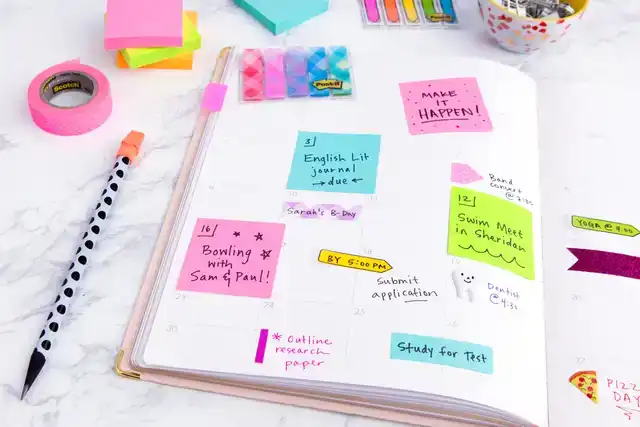 Scotch
Post-it
MAKE
IT
HAPPEN!
3
English Lit
journal
→ due ←
Band
concert
Sarah's B-Day
12
Swim Meet
in Sheridan
YOGA @
16
Bowling
with
Sam & Paul!
BY 5:00 PM
Submit
application
Dentist
@ 4:30
23
24
25
30
* Outline
research
paper
Study for Test
PIZZ
DAY